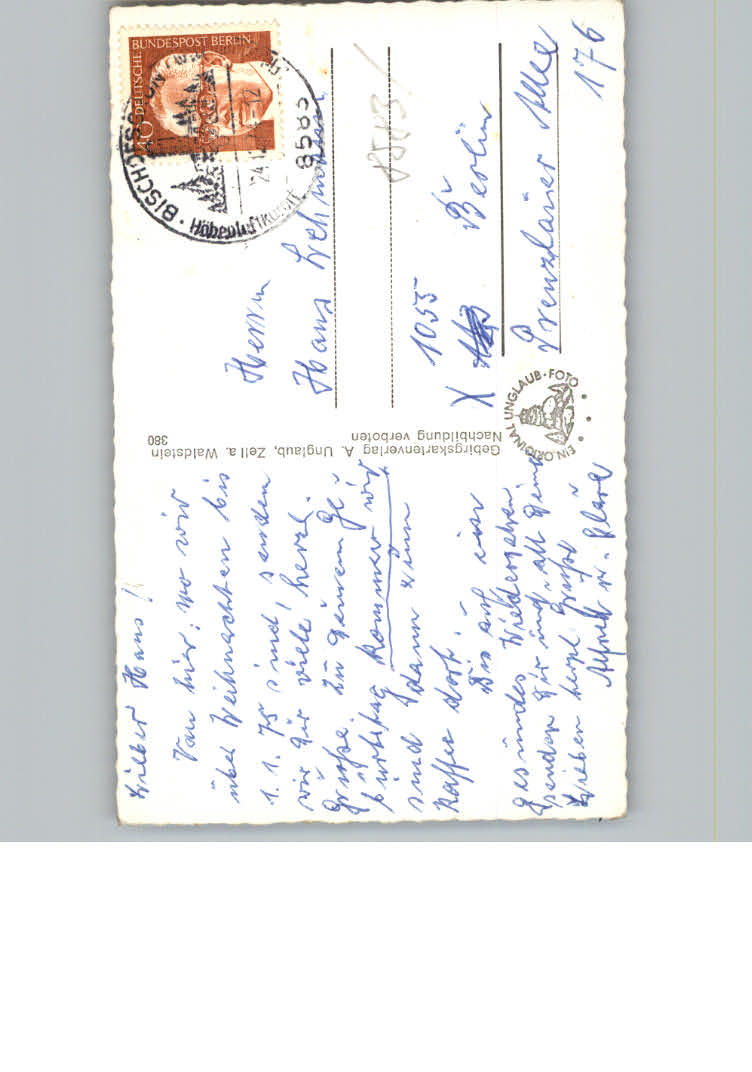 Lieber Hans!
Von hier: wo wir
über Weihnachten bis
1.1.75 sind, senden
wir Dir viele herzl.
Grüße. Zu Deinem Ge-
burtstag kommen wir
und dann zum
Kaffee dort.-
Bis auf ein
gesundes Wiedersehen.
senden Dir und all Deine
Lieben herzl. Grüße
Alfred u. Clara
Gebirgskartenverlag A. Unglaub, Zell a. Waldstein
Nachbildung verboten
380
EIN ORIGINAL UNGLAUB-FOTO
DEUTSCHE BUNDESPOST BERLIN
BISCHOFSGRÜN
Höhenluftkurort
8583
24.12.
Herrn
Hans Lehmann
8583
1055
X Berlin
Prenzlauer Allee
176